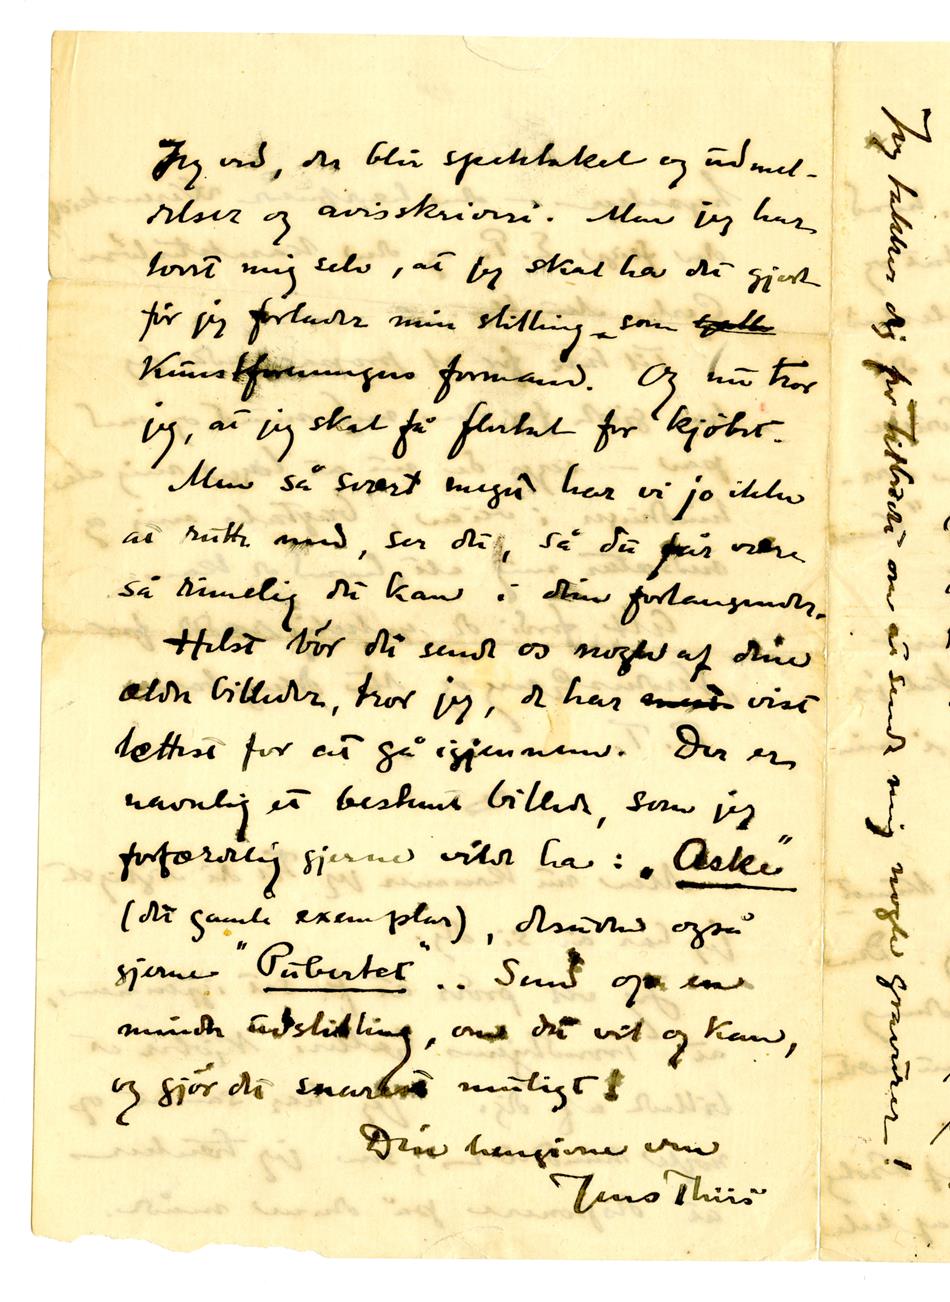 Jeg ved, der blir spektakel og udmel-
delser og avisskriveri. Men jeg har
lovet mig selv, at jeg skal ha det gjort
før jeg forlader min stilling som
Kunstforeningens formand. Og nu tror
jeg, at jeg skal få flertal for kjøbet.
Men så svært meget har vi jo ikke
at rutte med, ser du, så du får være
så rimelig du kan i dine forlangender.
Helst bør du sende os nogle af dine
ældre billeder, tror jeg, de har vist
lettest for at gå igjennem. Der er
navnlig et bestemt billede, som jeg
forfærdelig gjerne vilde ha: „Aske"
(det gamle exemplar), desuden også
gjerne "Pubertet".. Send op en
mindre udstilling, om du vil og kan,
og gjør det snarest muligt!
Din hengivne ven
Jens Thiis
Jeg takker dig for tilbudet om at sende mig nogle gravurer!